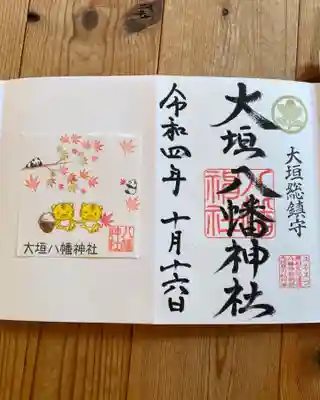 大垣総鎮守
大垣八幡神社
令和四年 十月十六日
大垣八幡神社